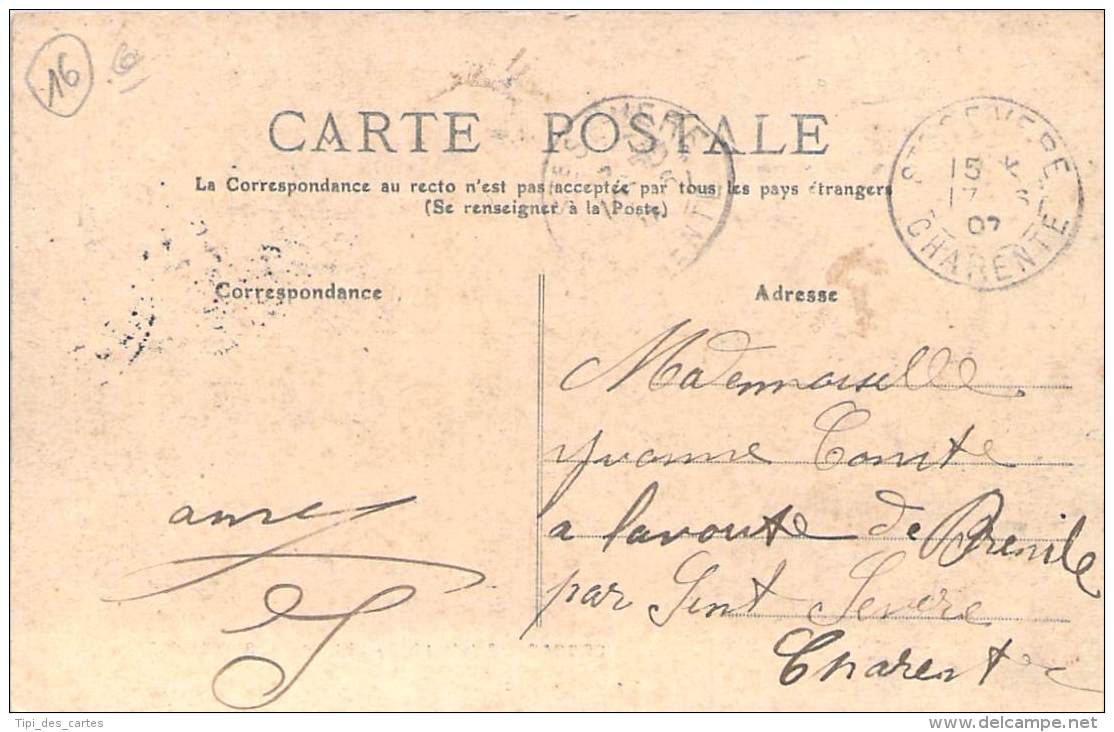 16
CARTE POSTALE
La Correspondance au recto n'est pas acceptée par tous les pays étrangers
(Se renseigner à la Poste)
STE SEVERE
15
17
07
CHARENTE
Correspondance
Adresse
Mademoiselle
Yvonne Comte
a lavoute de Breuile
par Sent Severe
Charente
Tipi_des_cartes
delcampe.net